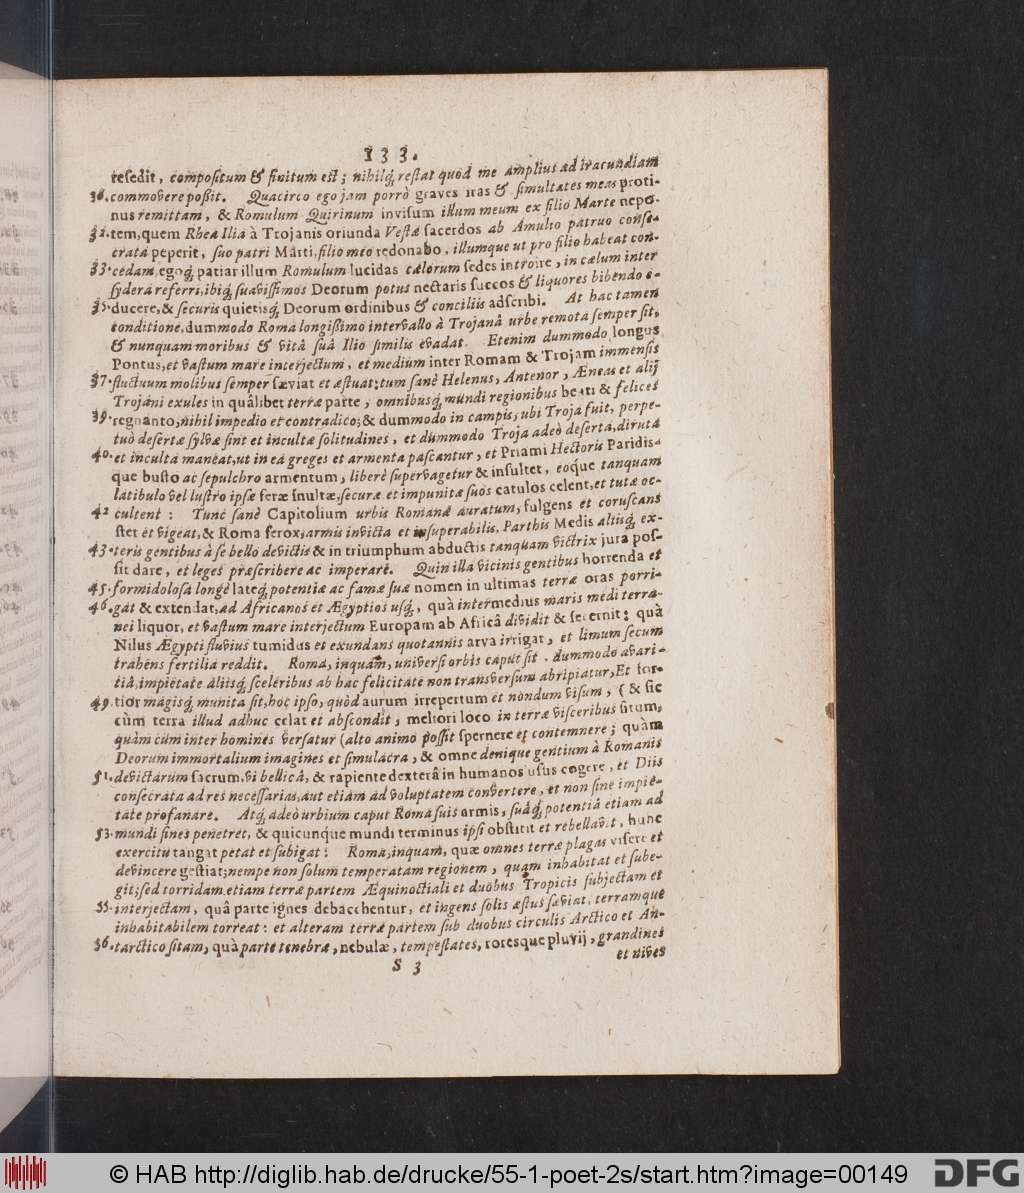 133.
resedit, compositum & finitum est; nihilq́; restat quod me amplius ad iracundiam
30. commovere possit. Quacirco ego jam porrò graves iras & simultates meas proti-
nus remittam, & Romulum Quirinum invisum illum meum ex filio Marte nepo-
32. tem, quem Rhea Ilia à Trojanis oriunda Vestæ sacerdos ab Amulio patruo conse-
crata peperit, suo patri Marti, filio meo redonabo, illumque ut pro filio habeat con-
33. cedam, egoq́; patiar illum Romulum lucidas cælorum sedes introire, in cælum inter
sydera referri, ibiq́; suavissimos Deorum potus nectaris succos & liquores bibendo e-
35. ducere, & securis quietisq́; Deorum ordinibus & conciliis adscribi. At hac tamen
conditione, dummodo Roma longissimo intervallo à Trojanâ urbe remota semper sit,
& nunquam moribus & vitâ suâ Ilio similis evadat. Etenim dummodo longus
Pontus, et vastum mare interjectum, et medium inter Romam & Trojam immensis
37. fluctuum molibus semper sæviat et æstuat: tum sanè Helenus, Antenor, Æneas et alij
Trojani exules in quâlibet terræ parte, omnibusq́; mundi regionibus beati & felices
39. regnanto, nihil impedio et contradico; & dummodo in campis, ubi Troja fuit, perpe-
tuò desertæ sylvæ sint et incultæ solitudines, et dummodo Troja adeò deserta, diruta
40. et inculta maneat, ut in eâ greges et armenta pascantur, et Priami Hectoris Paridis-
que busto ac sepulchro armentum, liberè supervagetur & insultet, eoque tanquam
latibulo vel lustro ipsæ feræ multæ, securæ et impunitæ suos catulos celent, et tutæ oc-
42 cultent: Tunc sanè Capitolium urbis Romanæ auratum, fulgens et coruscans
stet et vigeat, & Roma ferox, armis invicta et insuperabilis, Parthis Medis aliisq́; ex-
43. teris gentibus à se bello devictis & in triumphum abductis tanquam victrix jura pos-
sit dare, et leges præscribere ac imperare. Quin illa vicinis gentibus horrenda et
45. formidolosa longè lateq́; potentiæ ac famæ suæ nomen in ultimas terræ oras porri-
46. gat & extendat, ad Africanos et Ægyptios usq́;, quà intermedius maris mediterra-
nei liquor, et vastum mare interjectum Europam ab Africâ dividit & secernit; quà
Nilus Ægypti fluvius tumidus et exundans quotannis arva irrigat, et limum secum
trahens fertilia reddit. Roma, inquam, universi orbis caput sit, dummodo avari-
tiâ, impietate aliisq́; sceleribus ab hac felicitate non transversum abripiatur, Et for-
49. tior magisq́; munita sit, hoc ipso, quòd aurum irrepertum et nondum visum, (& sic
cùm terra illud adhuc celat et abscondit, meliori loco in terræ visceribus situm,
quàm cùm inter homines versatur (alto animo possit spernere et contemnere; quàm
Deorum immortalium imagines et simulacra, & omne denique gentium à Romanis
51. devictarum sacrum, vi bellicâ, & rapiente dexterâ in humanos usus cogere, et Diis
consecrata ad res necessarias, aut etiam ad voluptatem convertere, et non sine impie-
tate profanare. Atq́; adeò urbium caput Roma suis armis, suâq́; potentiâ etiam ad
53. mundi fines penetret, & quicunque mundi terminus ipsi obstitit et rebellavit, hunc
exercitu tangat petat et subigat: Roma, inquam, quæ omnes terræ plagas visere et
devincere gestiat; nempe non solum temperatam regionem, quam inhabitat et sube-
git; sed torridam etiam terræ partem Æquinoctiali et duobus Tropicis subjectam et
55. interjectam, quâ parte ignes debacchentur, et ingens solis æstus sæviat, terramque
inhabitabilem torreat: et alteram terræ partem sub duobus circulis Arctico et An-
56. tarctico sitam, quà parte tenebræ, nebulæ, tempestates, roresque pluvij, grandines
S 3
et nives
© HAB http://diglib.hab.de/drucke/55-1-poet-2s/start.htm?image=00149
DFG